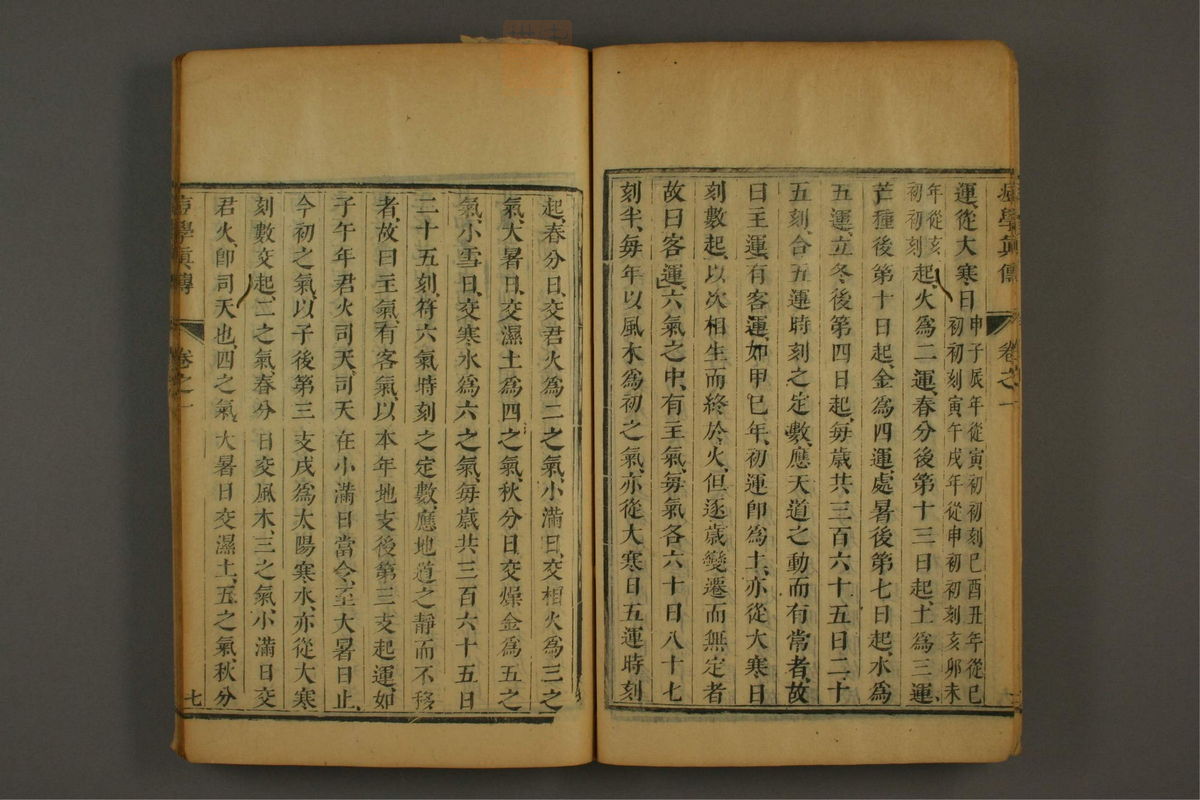 痘學眞傳 卷之一
運、從大寒日申子辰年從寅初初刻巳酉丑年從巳初初刻寅午戌年從申初初刻亥卯未
年從亥初初刻起、火爲二運、春分後第十三日起、土爲三運、
芒種後第十日起、金爲四運、處暑後第七日起、水爲
五運、立冬後第四日起、每歲共三百六十五日二十
五刻、合五運時刻之定數、應天道之動而有常者、故
曰主運、有客運、如甲巳年、初運卽爲土、亦從大寒日
刻數起、以次相生而終於火、但逐歲變遷而無定者
故曰客運、六氣之中、有主氣、每氣各六十日八十七
刻半、每年以風木爲初之氣、亦從大寒日五運時刻
起、春分日、交君火爲二之氣、小滿日、交相火爲三之
氣、大暑日、交濕土爲四之氣、秋分日交燥金爲五之
氣、小雪日、交寒水爲六之氣、每歲共三百六十五日
二十五刻、符六氣時刻之定數、應地道之靜而不移
者、故曰主氣、有客氣、以本年地支後第三支起運、如
子午年君火司天、司天在小滿日當令、至大暑日止、
今初之氣、以子後第三支戌爲太陽寒水、亦從大寒
刻數交起、二之氣、春分日交風木、三之氣、小滿日交
君火、卽司天也、四之氣、大暑日交濕土、五之氣、秋分
痘學眞傳 卷之一 七